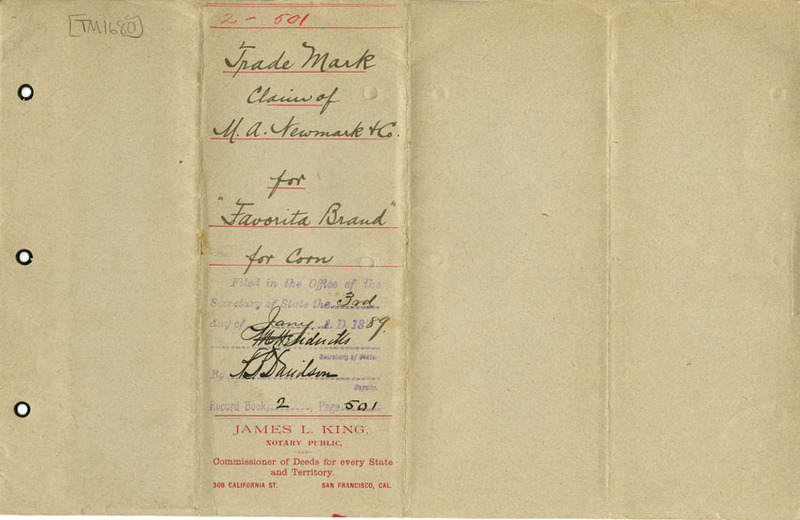 [TM1680]
2 - 501
Trade Mark
Claim of
M. A. Newmark & Co.
for
"Favorita Brand"
for Corn
Filed in the Office of the
Secretary of State the 3rd
day of Jany A. D. 1889.
Secretary of State
By Davidson
Deputy.
Record Book, 2, Page 501
JAMES L. KING,
NOTARY PUBLIC,
Commissioner of Deeds for every State
and Territory.
308 CALIFORNIA ST. SAN FRANCISCO, CAL.